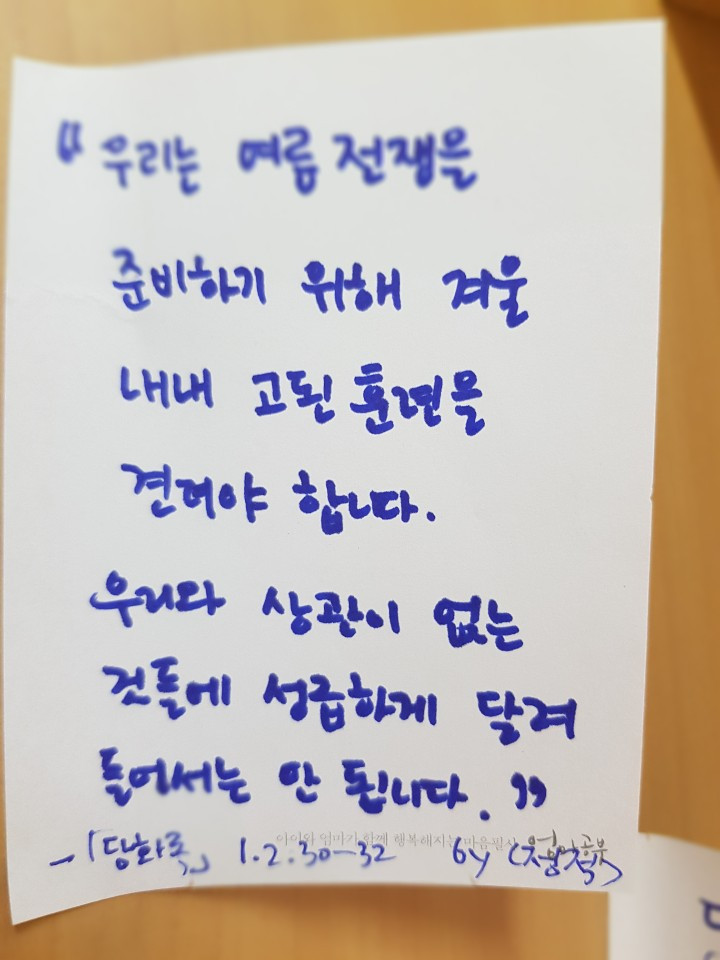 “우리는 여름 전쟁을
준비하기 위해 겨울
내내 고된 훈련을
견뎌야 합니다.
우리와 상관이 없는
것들에 성급하게 달려
들어서는 안 됩니다.”
아이와 엄마가 함께 행복해지는 마음필사
-「담화록」 1.2.30-32 by